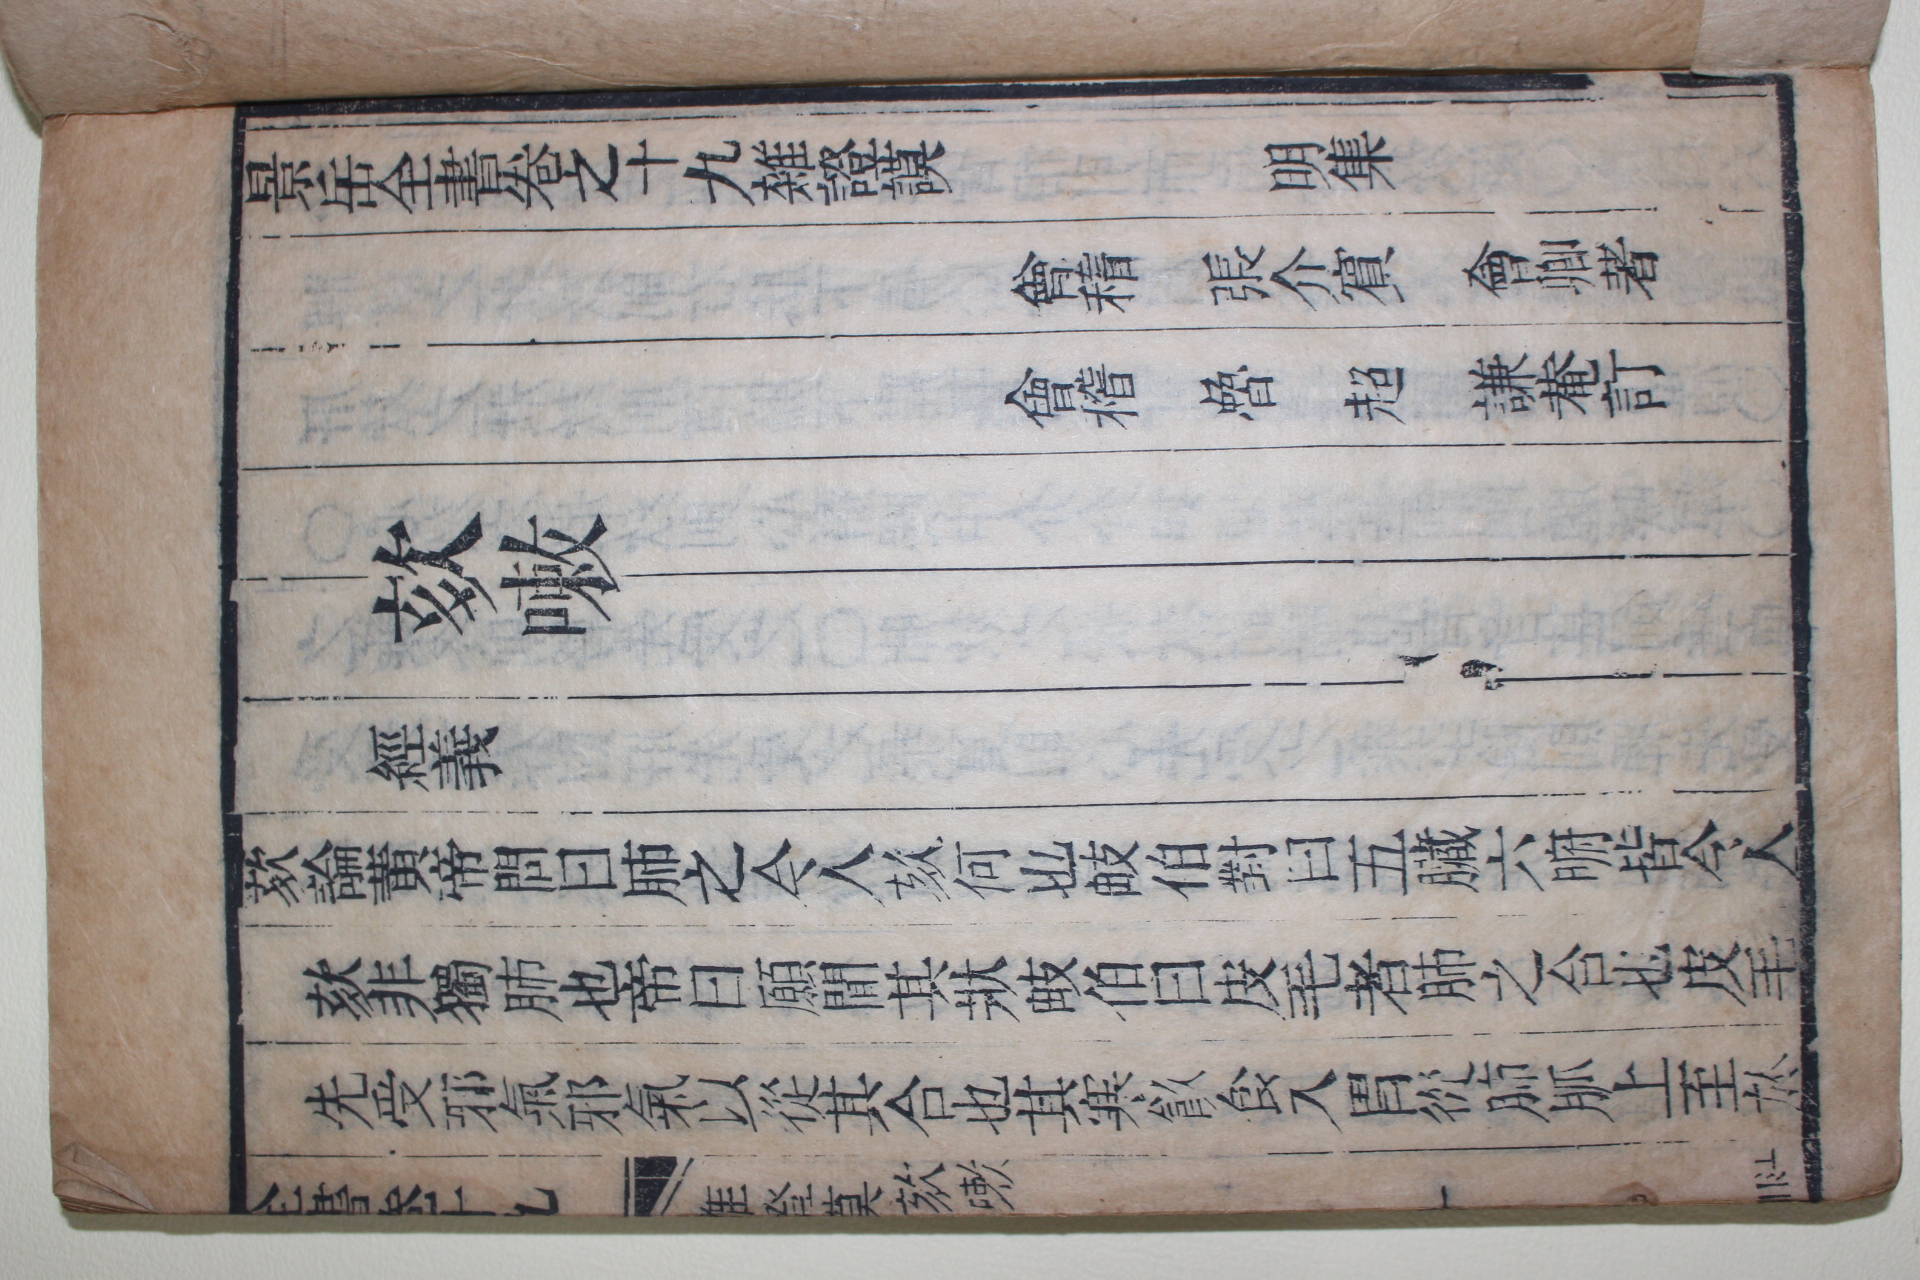 景岳全書卷之十九雜證謨 明集
會稽 張介賓 會卿著
會稽 魯 超 謙菴訂
欬嗽
經義
欬論黃帝問曰肺之令人欬何也歧伯對曰五臟六腑皆令人
欬非獨肺也帝曰願聞其狀歧伯曰皮毛者肺之合也皮毛
先受邪氣邪氣以從其合也其寒飲食入胃從肺脈上至於
全書卷十九 雜證謨 欬嗽 一